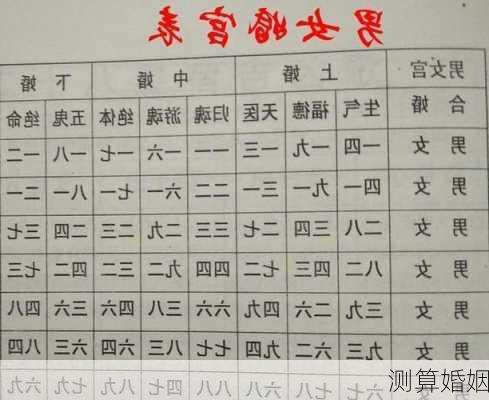 男女婚宫表
男女宫 上婚 中婚 下婚
合婚 生气 福德 天医 归魂 游魂 绝体 五鬼 绝命
男女 一四 一九 一三 一一 一六 一七 一八 一二
男女 四一 九一 三一 二二 六一 七一 八一 二一
男女 二八 三四 二七 三三 二九 二三 二四 三七
男女 八二 四三 七二 四四 九二 三二 四二 七三
男女 三九 二六 四九 六六 三八 四六 三六 四八
男女 九三 六二 九四 七七 八三 六四 六三 八四
六七 七八 六八 八八 四七 八九 七九 六九
测算婚姻